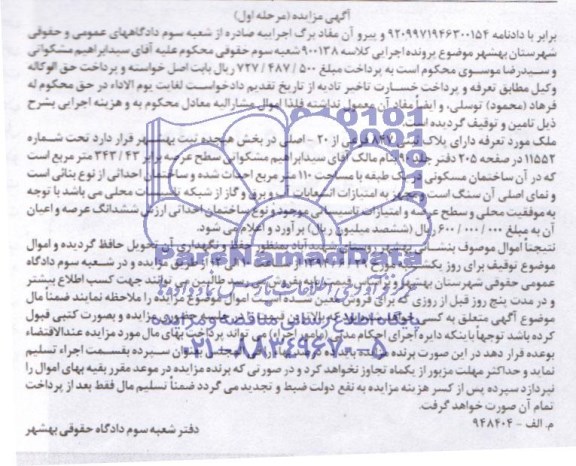 آگهی مزایده (مرحله اول)
برابر با دادنامه ۹۲۰۹۹۷۱۹۴۶۳۰۰۱۵۴ و پیرو آن مفاد برگ اجراییه صادره از شعبه سوم دادگاههای عمومی و حقوقی
شهرستان بهشهر موضوع پرونده اجرایی کلاسه ۹۰۰۱۳۸ شعبه سوم حقوقی محکوم علیه آقای سیدابراهیم مشکواتی
و سیدرضا موسوی محکوم است به پرداخت مبلغ ۵۰۰ / ۴۸۷ / ۷۲۷ ریال بابت اصل خواسته و پرداخت حق الوکاله
وکیل مطابق تعرفه و پرداخت خسارت تاخیر تادیه از تاریخ تقدیم دادخواست لغایت یوم الاداء در حق محکوم له
فرهاد (محمود) توسلی، و ایفاً مفاد آن معمول نداشته فلذا اموال مشارالیه معادل محکوم به و هزینه اجرایی بشرح
ذیل تامین و توقیف گردیده است
ملک مورد تعرفه دارای پلاک ثبتی ۸۴۷ فرعی از ۲۰ - اصلی در بخش هجده ثبت بهشهر قرار دارد تحت شماره
۱۱۵۵۲ در صفحه ۲۰۵ دفتر جلد ۹۰ بنام مالک آقای سیدابراهیم مشکواتی سطح عرصه برابر ۴۳ / ۳۴۳ متر مربع است
که در آن ساختمان مسکونی یک طبقه با مساحت ۱۱۰ متر مربع احداث شده و ساختمان احداثی از نوع بنائی است
و نمای اصلی آن سنگ است و مجهز به امتیازات انشعابات آب و برق و گاز از شبکه تاسیسات محلی می باشد با توجه
به موقعیت محلی و سطح عرصه و امتیازات تاسیساتی موجود و نوع ساختمان احداثی ارزش ششدانگ عرصه و اعیان
آن به مبلغ ۰۰۰ / ۰۰۰ / ۶۰۰ ریال (ششصد میلیون ریال) برآورد و اعلام می شود.
نتیجتاً اموال موصوف بنشانی بهشهر روستای شهیدآباد بمنظور حفظ و نگهداری آن تحویل حافظ گردیده و اموال
موضوع توقیف برای روز یکشنبه مورخ از طریق مزایده و در شعبه سوم دادگاه
عمومی حقوقی شهرستان بهشهر و بر اساس قیمت پایه بفروش می رسد طالبین می توانند جهت کسب اطلاع بیشتر
و در مدت پنج روز قبل از روزی که برای فروش معین شده است اموال موضوع مزایده را ملاحظه نمایند ضمناً مال
موضوع آگهی متعلق به کسی مزایده و بصورت کتبی قبول
کرده باشد توجهاً باینکه دایره اجرای احکام مدنی (مامور اجرا) می تواند پرداخت بهای مال مورد مزایده عندالاقتضاء
بوعده قرار دهد در این صورت برنده مزایده باید ده درصد بهای را فی المجلس بعنوان سپرده بقسمت اجراء تسلیم
نماید و حداکثر مهلت مزبور از یکماه تجاوز نخواهد کرد و در صورتی که برنده مزایده در موعد مقرر بقیه بهای اموال را
نپردازد سپرده پس از کسر هزینه مزایده به نفع دولت ضبط و تجدید می گردد ضمناً تسلیم مال فقط بعد از پرداخت
تمام آن صورت خواهد گرفت.
م. الف - ۹۴۸۴۰۴
دفتر شعبه سوم دادگاه حقوقی بهشهر
ParsNamadData
پایگاه اطلاع رسانی مناقصه و مزایده
۰۲۱-۸۸۳۴۹۶۷۰-۵